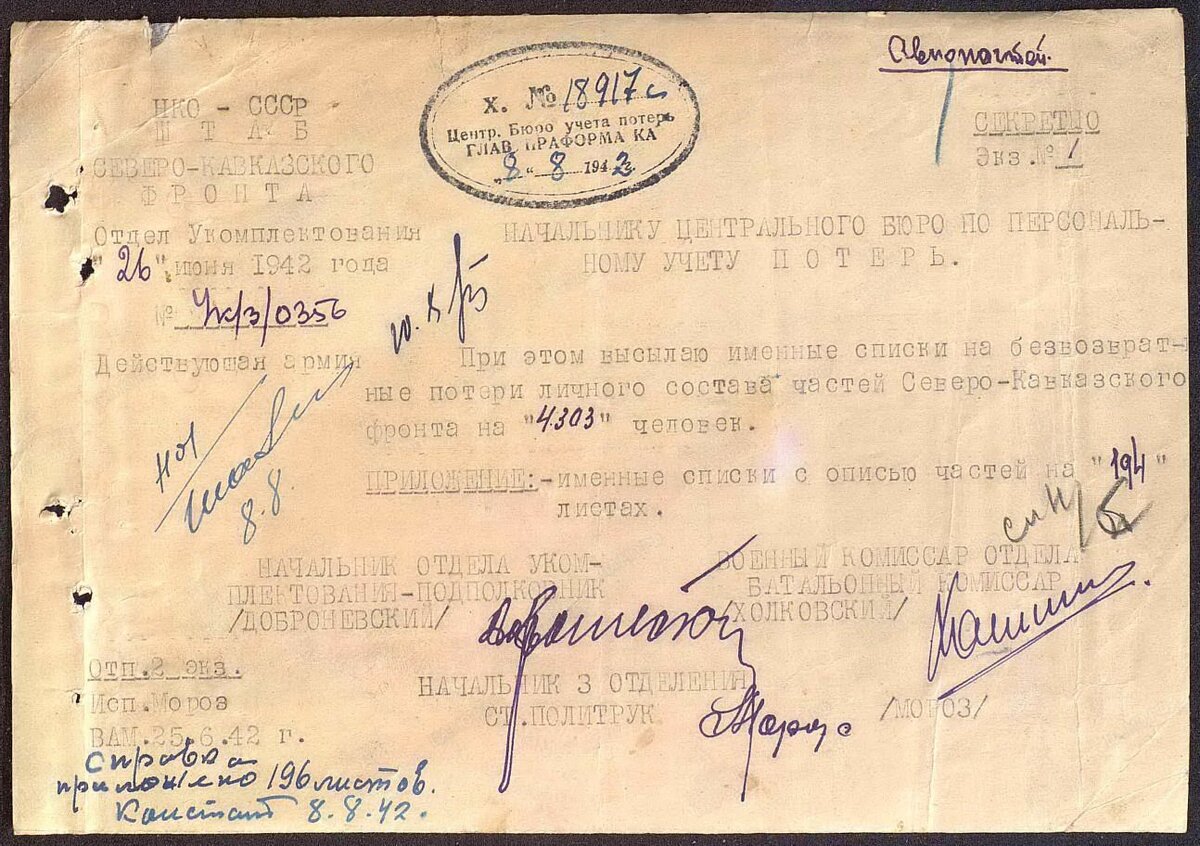 НКО - СССР
ШТАБ
СЕВЕРО-КАВКАЗСКОГО
ФРОНТА
Отдел Укомплектования
"26" июня 1942 года
№ Ук/3/0356
Действующая армия
Х. № 18917с
Центр. Бюро учета потерь
ГЛАВ УПРАФОРМА КА
"8" 8 1942
СЕКРЕТНО
Экз.№ 1
НАЧАЛЬНИКУ ЦЕНТРАЛЬНОГО БЮРО ПО ПЕРСОНАЛЬ-
НОМУ УЧЕТУ ПОТЕРЬ.
При этом высылаю именные списки на безвозврат-
ные потери личного состава частей Северо-Кавказского
фронта на "4303" человек.
ПРИЛОЖЕНИЕ:-именные списки с описью частей на "194"
листах.
8.8.
НАЧАЛЬНИК ОТДЕЛА УКОМ-
ПЛЕКТОВАНИЯ-ПОДПОЛКОВНИК
/ДОБРОНЕВСКИЙ/
ВОЕННЫЙ КОМИССАР ОТДЕЛА
БАТАЛЬОННЫЙ КОМИССАР
/ХОЛКОВСКИЙ/
НАЧАЛЬНИК 3 ОТДЕЛЕНИЯ
СТ.ПОЛИТРУК /МОРОЗ/
Мороз
Отп.2 экз.
Исп.Мороз
ВАМ.25.6.42 г.
Справка
приложено 196 листов.
8.8.42.